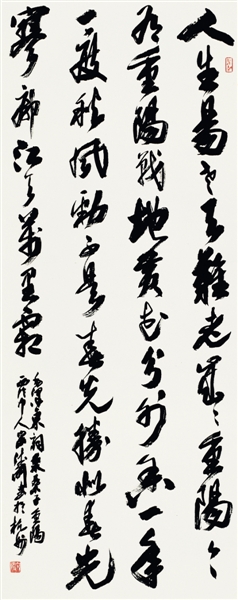 人生易老天難老歲〻重陽今
又重陽戰地黃花分外香一年
一度秋風勁不是春光勝似春光
寥廓江天萬里霜
毛澤東詞采桑子重陽
於杭州